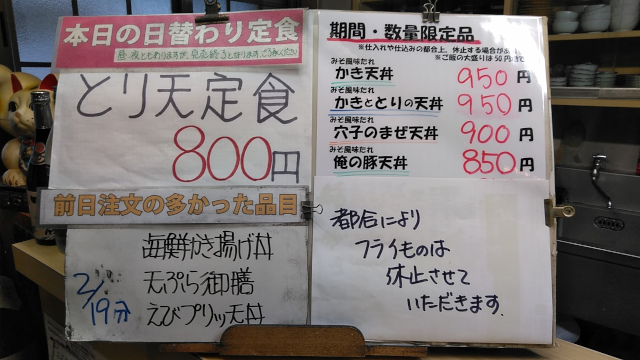 本日の日替わり定食
昼・夜ともありますが、完売終了となります。ご了承ください
とり天定食
800円
前日注文の多かった品目
海鮮かき揚げ丼
天ぷら御膳
えびプリッツ天丼
2/19分
期間・数量限定品
※仕入れや仕込みの都合上、休止する場合があ
※ご飯の大盛りは50円
みそ風味たれ
かき天丼 950円
みそ風味たれ
かきととりの天丼 950円
みそ風味たれ
穴子のまぜ天丼 900円
みそ風味たれ
俺の豚天丼 850円
都合により
フライものは
休止させて
いただきます。